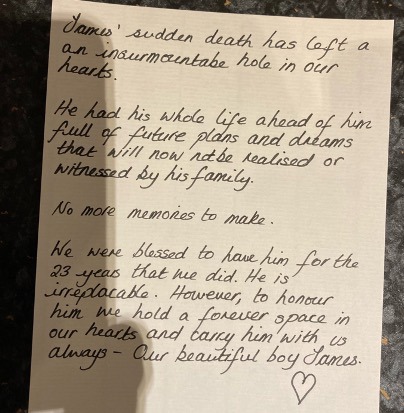 James' sudden death has left a
an insurmountabe hole in our
hearts.
He had his whole life ahead of him
full of future plans and dreams
that will now notbe realised or
witnessed by his family.
No more memories to make.
We were blessed to have him for the
23 years that we did. He is
irreplacable. However, to honour
him we hold a forever space in
our hearts and carry him with us
always - Our beautiful boy James.